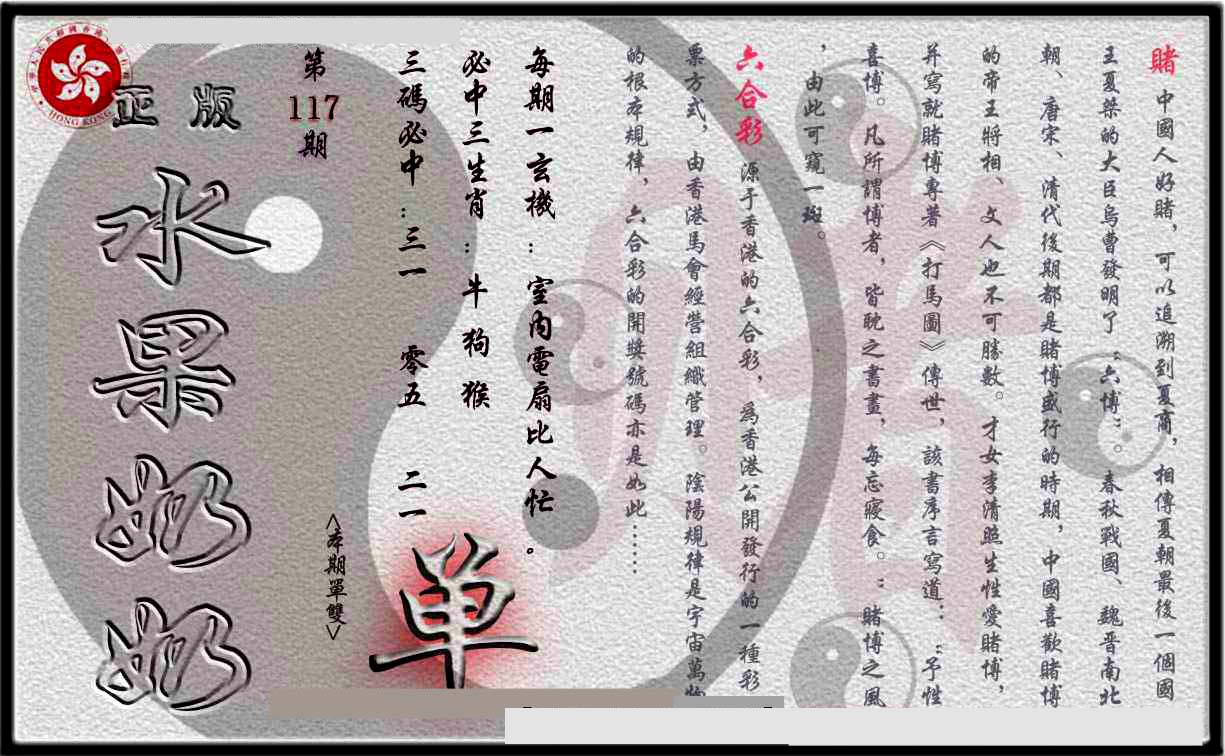 賭 中國人好賭，可以追溯到夏商，相傳夏朝最後一個國
王夏桀的大臣烏曹發明了“六博”。春秋戰國、魏晋南北
朝、唐宋、清代後期都是賭博盛行的時期，中國喜歡賭博
的帝王將相、文人也不可勝數。才女李清照生性愛賭博，
并寫就賭博專著《打馬圖》傳世，該書序言寫道：“予性
喜博。凡所謂博者，皆耽之書畫，每忘寢食。”賭博之風
，由此可窺一斑。
六合彩 源于香港的六合彩，爲香港公開發行的一種彩
票方式，由香港馬會經營組織管理。陰陽規律是宇宙萬物
的根本規律，六合彩的開獎號碼亦是如此……
每期一玄機：室内電扇比人忙。
必中三生肖：牛 狗 猴
三碼必中：三一 零五 二一
单
<本期單雙>
第117期
正版
水果奶奶
HONG KONG